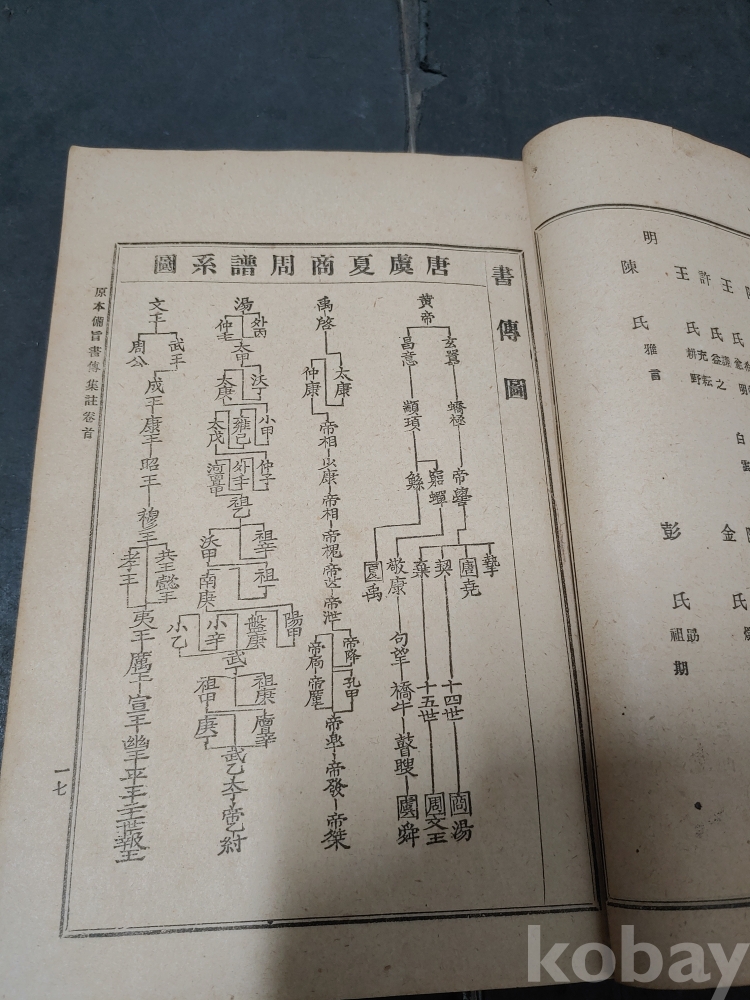 明 陳氏雅言
王氏耕野
許氏
王氏
彭氏
金氏
書傳圖
唐虞夏商周譜系圖
黃帝
玄囂 昌意
蟜極 顓頊
帝嚳 窮蟬 鯀
摯 唐堯 契 棄 敬康 夏禹
句望
十四世 十五世 橋牛
瞽瞍
商湯 周文王 虞舜
禹啓
太康 仲康
帝相
少康
帝相
帝槐
帝芒
帝泄
帝降 帝扃
孔甲 帝廑
帝皐
帝發
帝桀
湯
外丙 仲壬
太甲
沃丁 太庚
小甲 雍己 太戊
仲丁 外壬 河亶甲
祖乙
祖辛 沃甲
祖丁 南庚
陽甲 盤庚 小辛 小乙
武丁
祖庚 祖甲
廩辛 庚丁
武乙
太丁
帝乙
紂
文王
武王 周公
成王
康王
昭王
穆王
共王 懿王 孝王
夷王
厲王
宣王
幽王
平王
十二世
赧王
原本備旨書傳集註卷首
一七
kobay